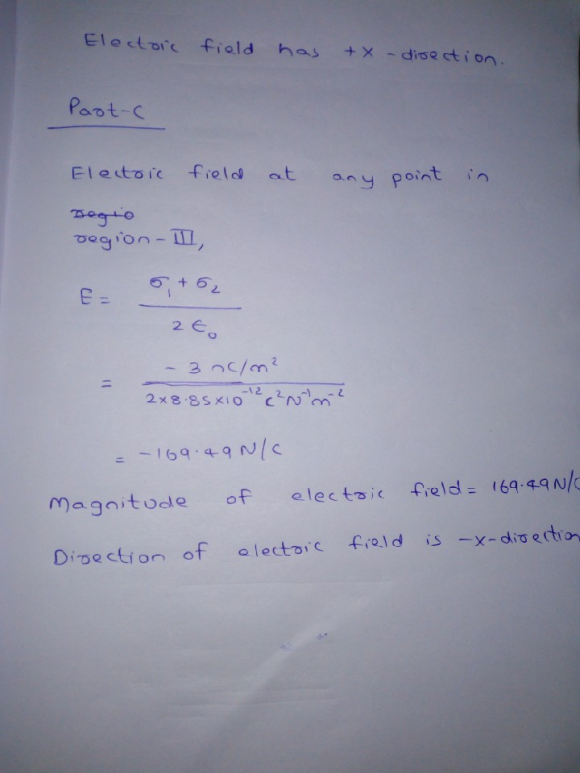 Electric field has +x-direction.
Part-C
Electric field at any point in
regio
region-III,
E = σ₁ + σ₂ / 2 ϵ₀
= - 3 nC/m² / 2×8.85×10⁻¹² C²N⁻¹m⁻²
= -169.49 N/C
Magnitude of electric field = 169.49 N/C
Direction of electric field is -x-direction